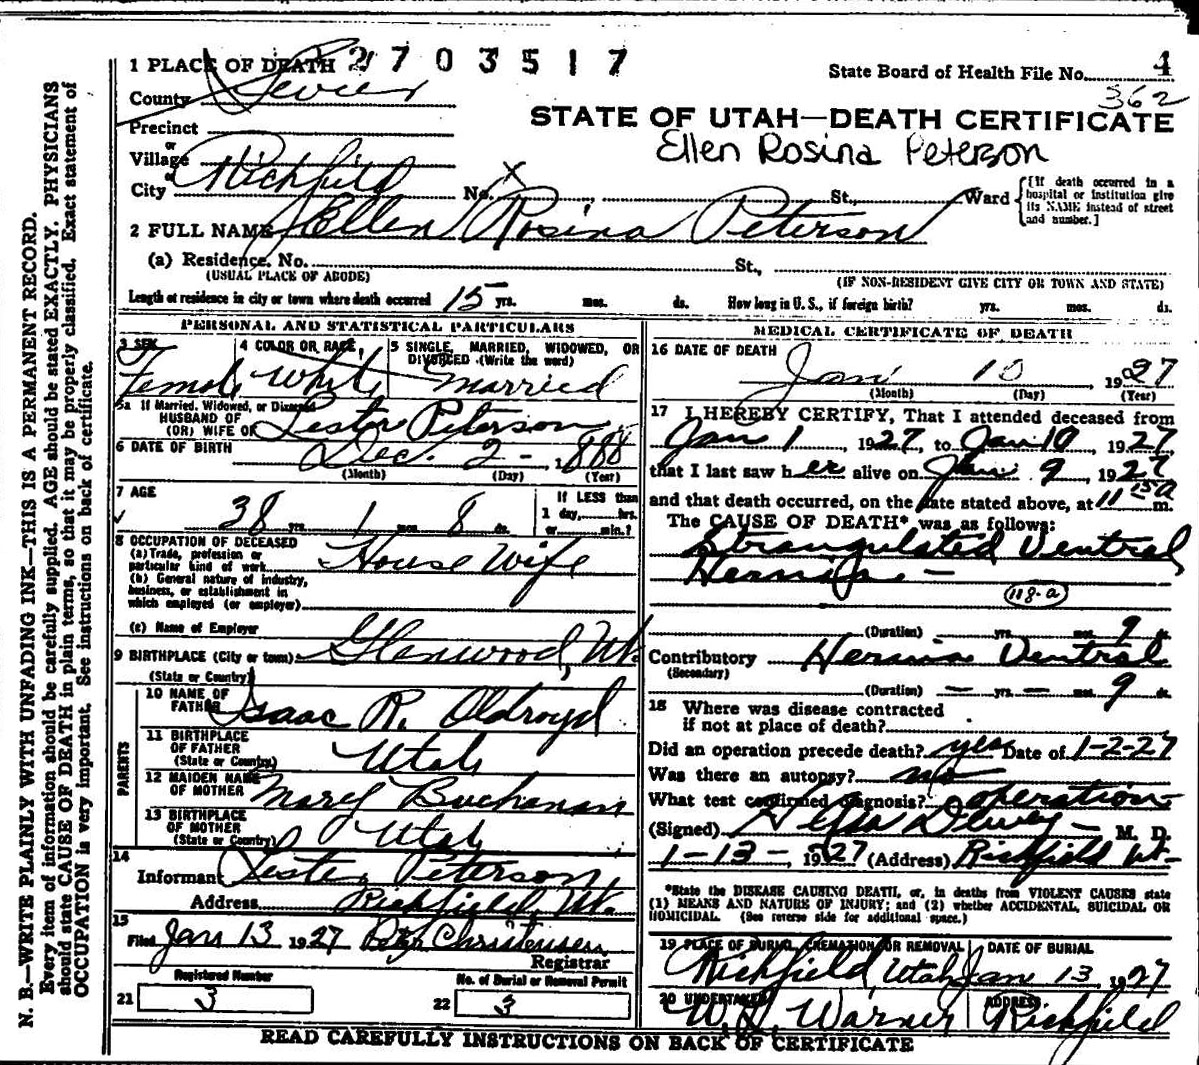 1 PLACE OF DEATH 2703517
State Board of Health File No. 4
362
County Sevier
STATE OF UTAH—DEATH CERTIFICATE
Ellen Rosina Peterson
Precinct
or
Village
or
City Richfield No. X, St., Ward {[If death occurred in a hospital or institution give its NAME instead of street and number.]
2 FULL NAME Ellen Rosina Peterson
(a) Residence. No. St.,
(USUAL PLACE OF ABODE) (IF NON-RESIDENT GIVE CITY OR TOWN AND STATE)
Length of residence in city or town where death occurred 15 yrs. mos. ds. How long in U. S., if foreign birth? yrs. mos. ds.
PERSONAL AND STATISTICAL PARTICULARS
3 SEX 4 COLOR OR RACE, 5 SINGLE, MARRIED, WIDOWED, OR DIVORCED (Write the word)
Female White married
5a If Married, Widowed, or Divorced
HUSBAND OF
(OR) WIFE OF Lester Peterson
6 DATE OF BIRTH Dec. 2 - 1888
(Month) (Day) (Year)
7 AGE If LESS than
38 yrs. 1 mos. 8 ds. 1 day, hrs.
or min.?
8 OCCUPATION OF DECEASED
(a) Trade, profession or
particular kind of work House Wife
(b) General nature of industry,
business, or establishment in
which employed (or employer)
(c) Name of Employer
9 BIRTHPLACE (City or town) Glenwood, Ut.
(State or Country)
PARENTS
10 NAME OF
FATHER Isaac R. Oldroyd
11 BIRTHPLACE
OF FATHER
(State or Country) Utah
12 MAIDEN NAME
OF MOTHER Mary Buchanan
13 BIRTHPLACE
OF MOTHER
(State or Country) Utah
14
Informant Lester Peterson
Address Richfield, Ut.
15
Filed Jan 13 1927 Christensen
Registrar
Registered Number No. of Burial or Removal Permit
21 3 22 3
MEDICAL CERTIFICATE OF DEATH
16 DATE OF DEATH
Jan 10 1927
(Month) (Day) (Year)
17 I HEREBY CERTIFY, That I attended deceased from
Jan 1, 1927 to Jan 10, 1927
that I last saw her alive on Jan 9 1927
and that death occurred, on the date stated above, at 11 15 a m.
The CAUSE OF DEATH* was as follows:
Strangulated Ventral
Hernia -
118-a
(Duration) yrs. mos. 9 ds.
Contributory Hernia Ventral
(Secondary)
(Duration) — yrs. — mos. 9 ds.
18 Where was disease contracted
if not at place of death?
Did an operation precede death? yes Date of 1-2-27
Was there an autopsy? no
What test confirmed diagnosis? operation
(Signed) Dewey — M. D.
1-13-, 1927 (Address) Richfield Ut-
*State the DISEASE CAUSING DEATH, or, in deaths from VIOLENT CAUSES state
(1) MEANS AND NATURE OF INJURY; and (2) whether ACCIDENTAL, SUICIDAL OR
HOMICIDAL. (See reverse side for additional space.)
19 PLACE OF BURIAL, CREMATION OR REMOVAL DATE OF BURIAL
Richfield, Utah Jan 13, 1927
20 UNDERTAKER ADDRESS.
W. Warner Richfield
READ CAREFULLY INSTRUCTIONS ON BACK OF CERTIFICATE
N. B.—WRITE PLAINLY WITH UNFADING INK—THIS IS A PERMANENT RECORD.
Every item of information should be carefully supplied. AGE should be stated EXACTLY. PHYSICIANS
should state CAUSE OF DEATH in plain terms, so that it may be properly classified. Exact statement of
OCCUPATION is very important. See instructions on back of certificate.